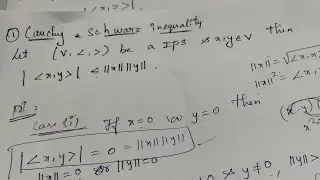 ① Cauchy & Schwarz inequality
Let (V, <,>) be a IPS & x,y ∈ V then
|<x,y>| ≤ ||x|| ||y||.
||x|| = √<x,
||x||² = <x,
Case (i) If x=0 or y=0 then
|<x,y>| = 0 = ||x|| ||y||
||x||=0 or ||y||=0
& y≠0